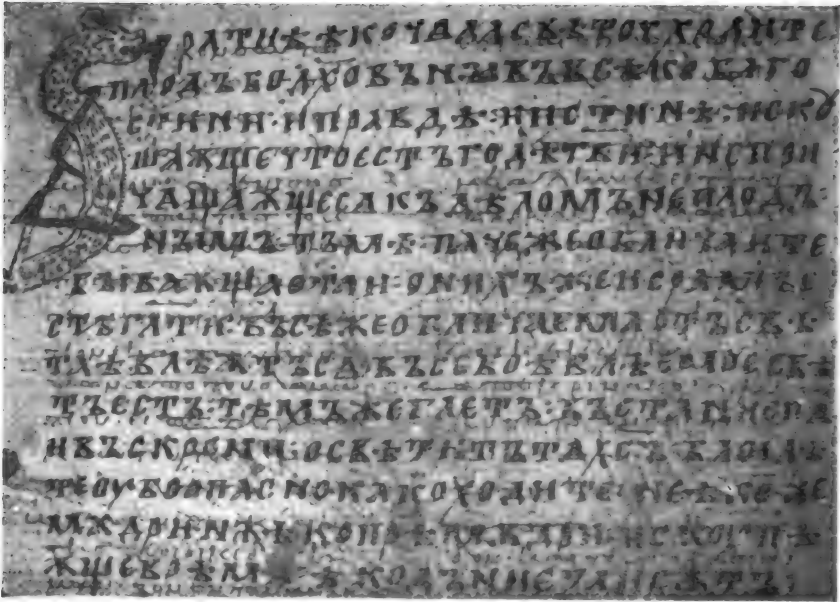 БРАТИѢ ѢКО ЧАДА СВѢТОУ ХОДИТЕ
ПЛОДЪ БО ДХОВЪНЪІ ВЪ ВСѢКО БЛАГО
СТИНИ · И ПРАВДѢ · И ИСТИНѢ · ИСКОУ
ШАѬЩЕ ЧТО ЕСТЪ ГОДѢ ГВИ · И НЕ ПРИ
ЧАЩАѬЩЕ СѦ КЪ ДѢЛОМЪ НЕПЛОДЪ
НЪІМЪ · ТЪМѢ · ПАЧЕ ЖЕ ОБЛИЧАИТЕ
БЪІВАѬЩАѢ ОТАИ · О НИХЪ ЖЕ И СРАМЪ Е
СТЪ ГЛАТИ · ВЬСѢ ЖЕ ОБЛИЧАЕМАА ОТЪ СВѢ
ТА ѢВЛѢѬТЪ СѦ ВЪСЕ БО ѢВЛѢЕМОЕ СВѢ
ТЪ ЕСТЪ · ТѢМЪ ЖЕ ГЛЕТЪ · ВЪСТАНИ СПѦ
И ВЪСКРСНИ · ОСВѢТИТЪ ТѦ ХСЪ БЛЮДѢ
ТЕ ОУБО ОПАСНО КАКО ХОДИТЕ · НЕ ѢКО ЖЕ
МѪДРИ НЪ ѢКО ПРѢМѪДРИ · ИСКОУПѢ
ѬЩЕ ВРѢМѦ ѢКО ДЪНИЕ СѪТЪ